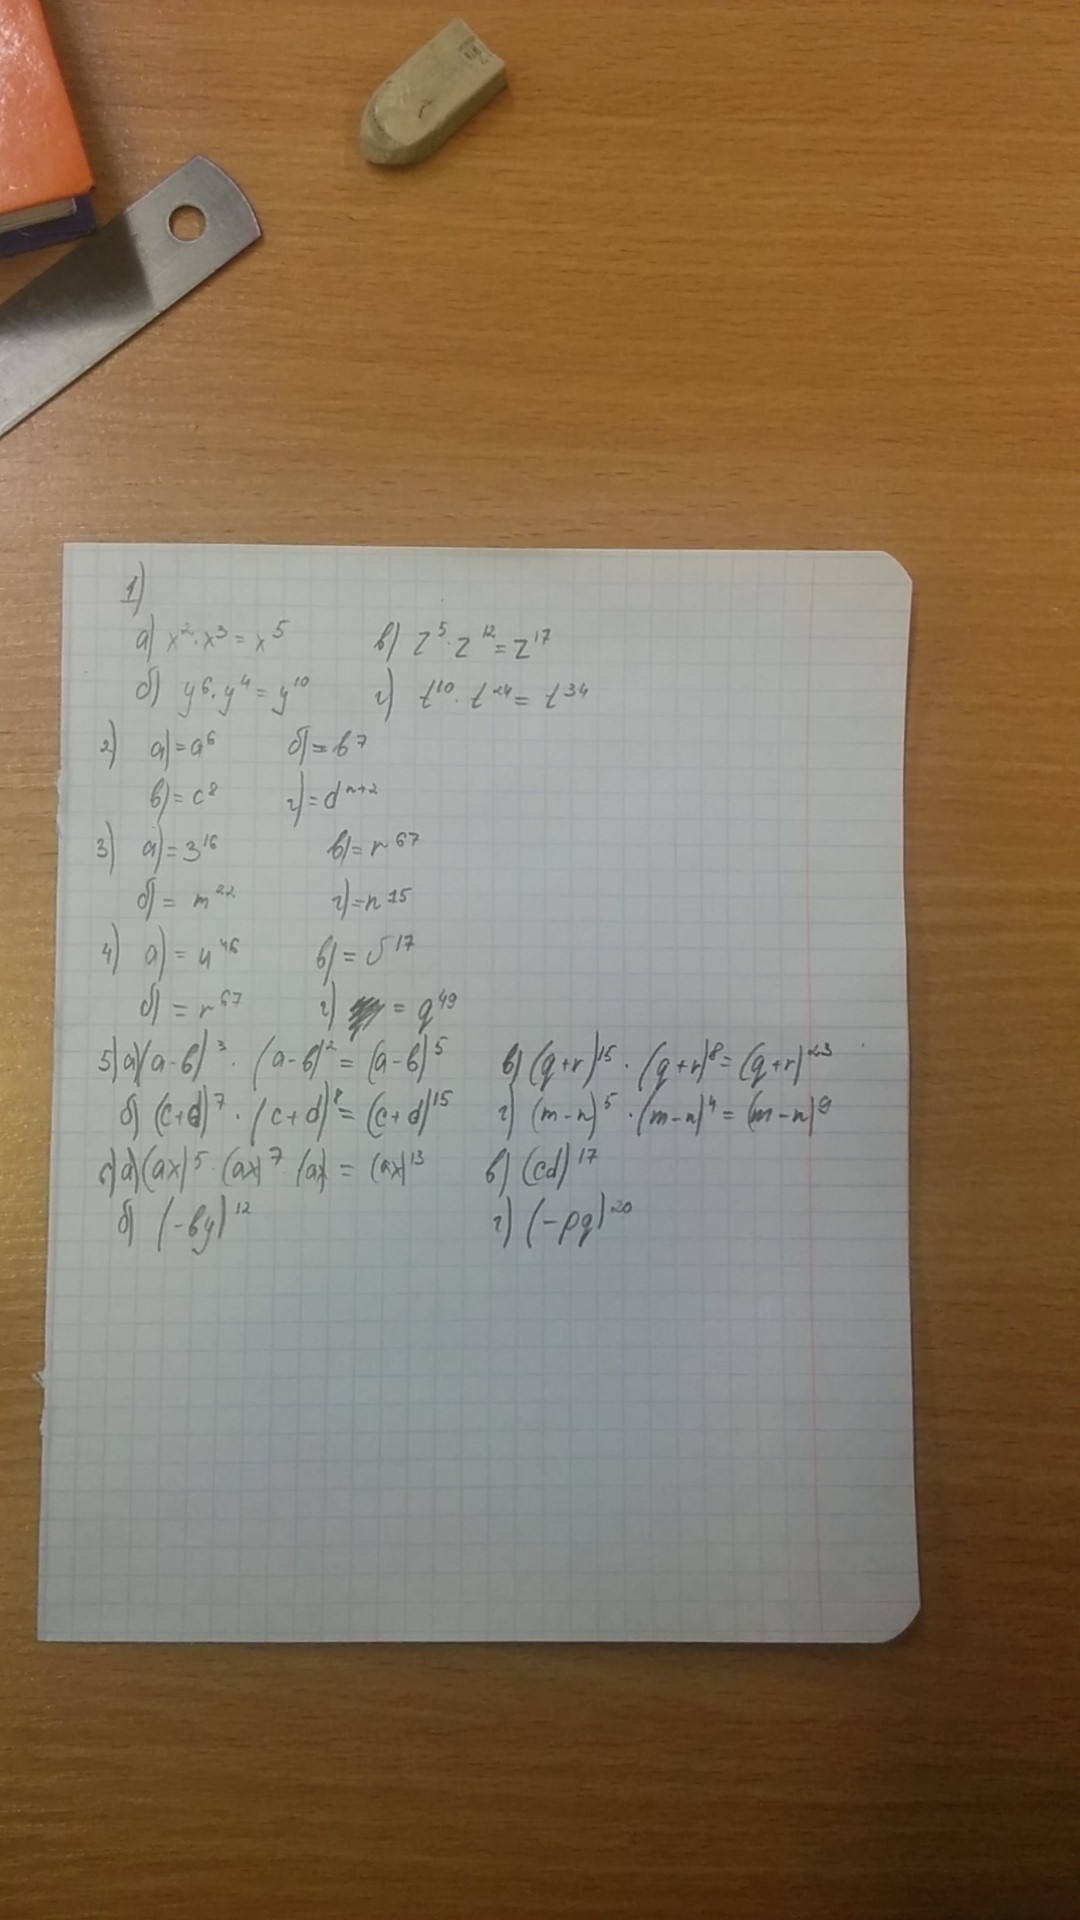 1)
а) x²·x³=x⁵ в) z⁵·z¹²=z¹⁷
б) y⁶·y⁴=y¹⁰ г) t¹⁰·t²⁴=t³⁴
2) а)=a⁶ б)=b⁷
в)=c⁸ г)=dⁿ⁺²
3) а)=3¹⁶ в)=r⁶⁷
б)=m²² г)=n¹⁵
4) а)=u⁴⁶ в)=5¹⁷
б)=r⁶⁷ г)=q⁴⁹
5) а)(a-b)³·(a-b)²=(a-b)⁵ в)(q+r)¹⁵·(q+r)⁸=(q+r)²³
б)(c+d)⁷·(c+d)⁸=(c+d)¹⁵ г)(m-n)⁵·(m-n)⁴=(m-n)⁹
6) а)(ax)⁵·(ax)⁷·(ax)=(ax)¹³ в)(cd)¹⁷
б)(-by)¹² г)(-pq)²⁰